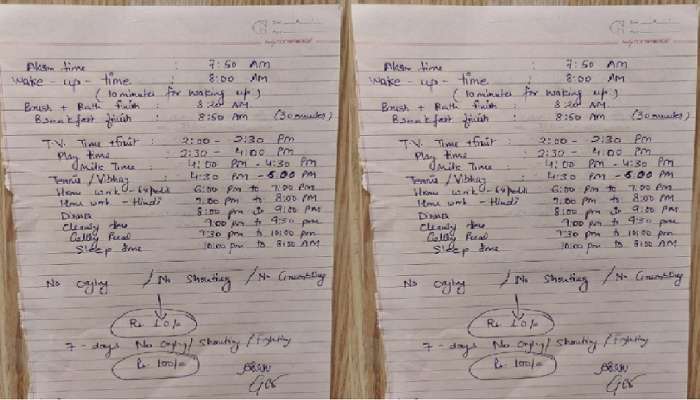 Alarm time : 7:50 AM
Wake - up - time : 8:00 AM
(10 minutes for waking up)
Brush + Bath finish : 8:20 AM
Breakfast finish : 8:50 AM (30 minutes)
T.V. Time + fruit : 2:00 - 2:30 PM
Play time : 2:30 - 4:00 PM
Milk Time : 4:00 PM - 4:30 PM
Tennis / : 4:30 PM - 5:00 PM
Home work - : 6:00 PM to 7:00 PM
Home work - Hindi : 7:00 PM to 8:00 PM
Dinner : 8:00 pm to 9:00 PM
time : 9:00 PM to 9:30 pm
: 9:30 PM to 10:00 pm
Sleep time : 10:00 pm to 8:00 AM
No crying / No shouting / No
Rs. 10/-
7 - days No crying / shouting / fighting
Rs. 100/-
Alarm time : 7:50 AM
Wake - up - time : 8:00 AM
(10 minutes for waking up)
Brush + Bath finish : 8:20 AM
Breakfast finish : 8:50 AM (30 minutes)
T.V. Time + fruit : 2:00 - 2:30 PM
Play time : 2:30 - 4:00 PM
Milk Time : 4:00 PM - 4:30 PM
Tennis / : 4:30 PM - 5:00 PM
Home work - : 6:00 PM to 7:00 PM
Home work - Hindi : 7:00 PM to 8:00 PM
Dinner : 8:00 pm to 9:00 PM
time : 9:00 PM to 9:30 pm
: 9:30 PM to 10:00 pm
Sleep time : 10:00 pm to 8:00 AM
No crying / No shouting / No
Rs. 10/-
7 - days No crying / shouting / fighting
Rs. 100/-